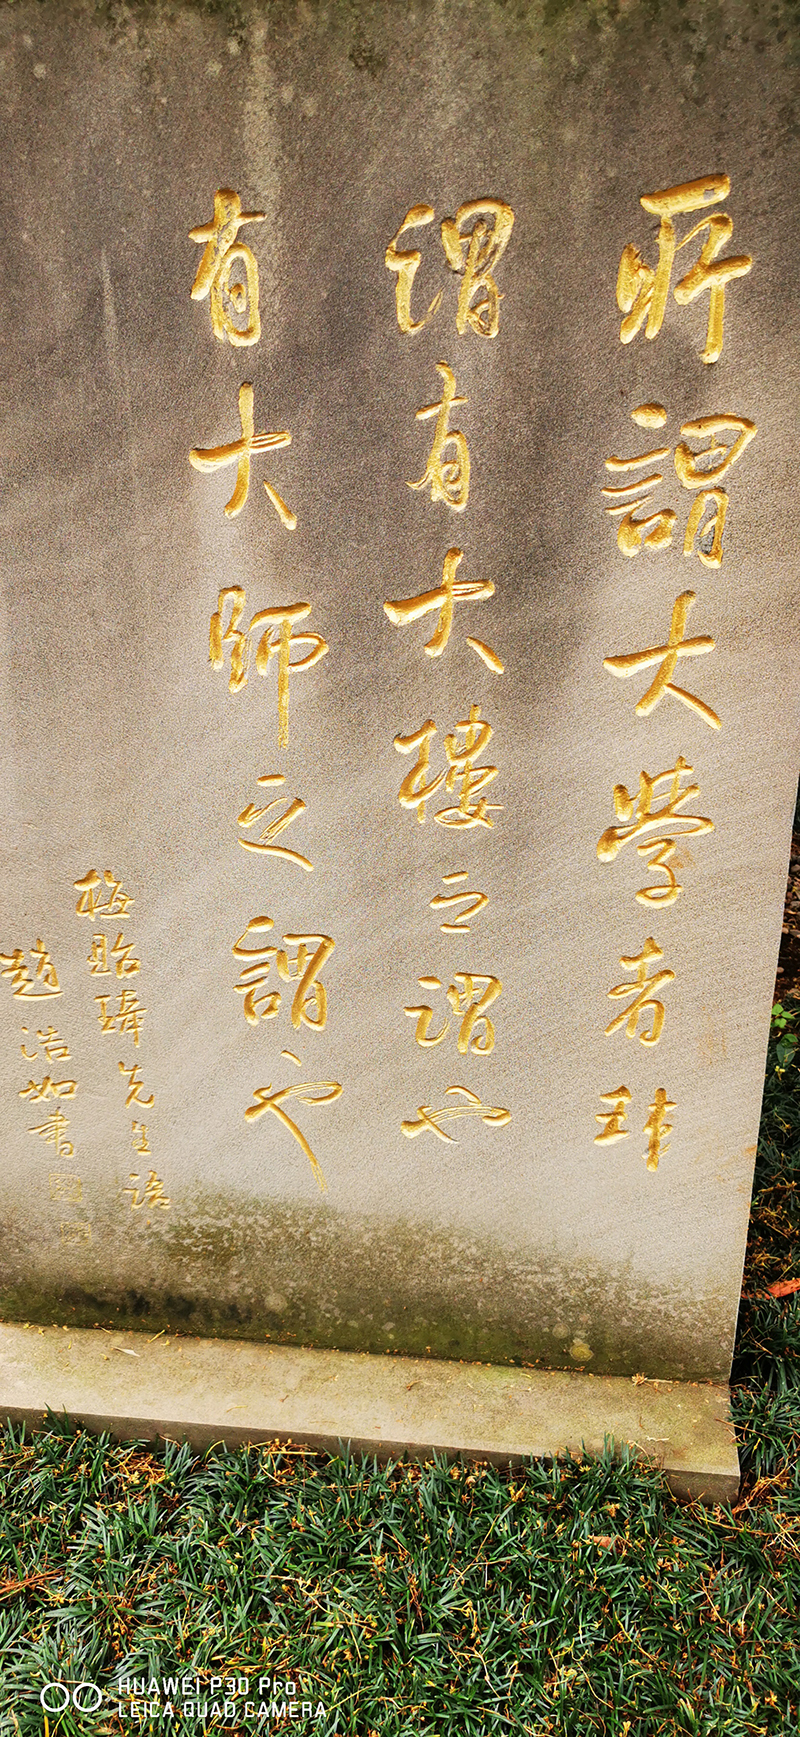 所謂大學者非
謂有大樓之謂也
有大師之謂也
梅貽琦先生語
趙浩如書
HUAWEI P30 Pro
LEICA QUAD CAMERA